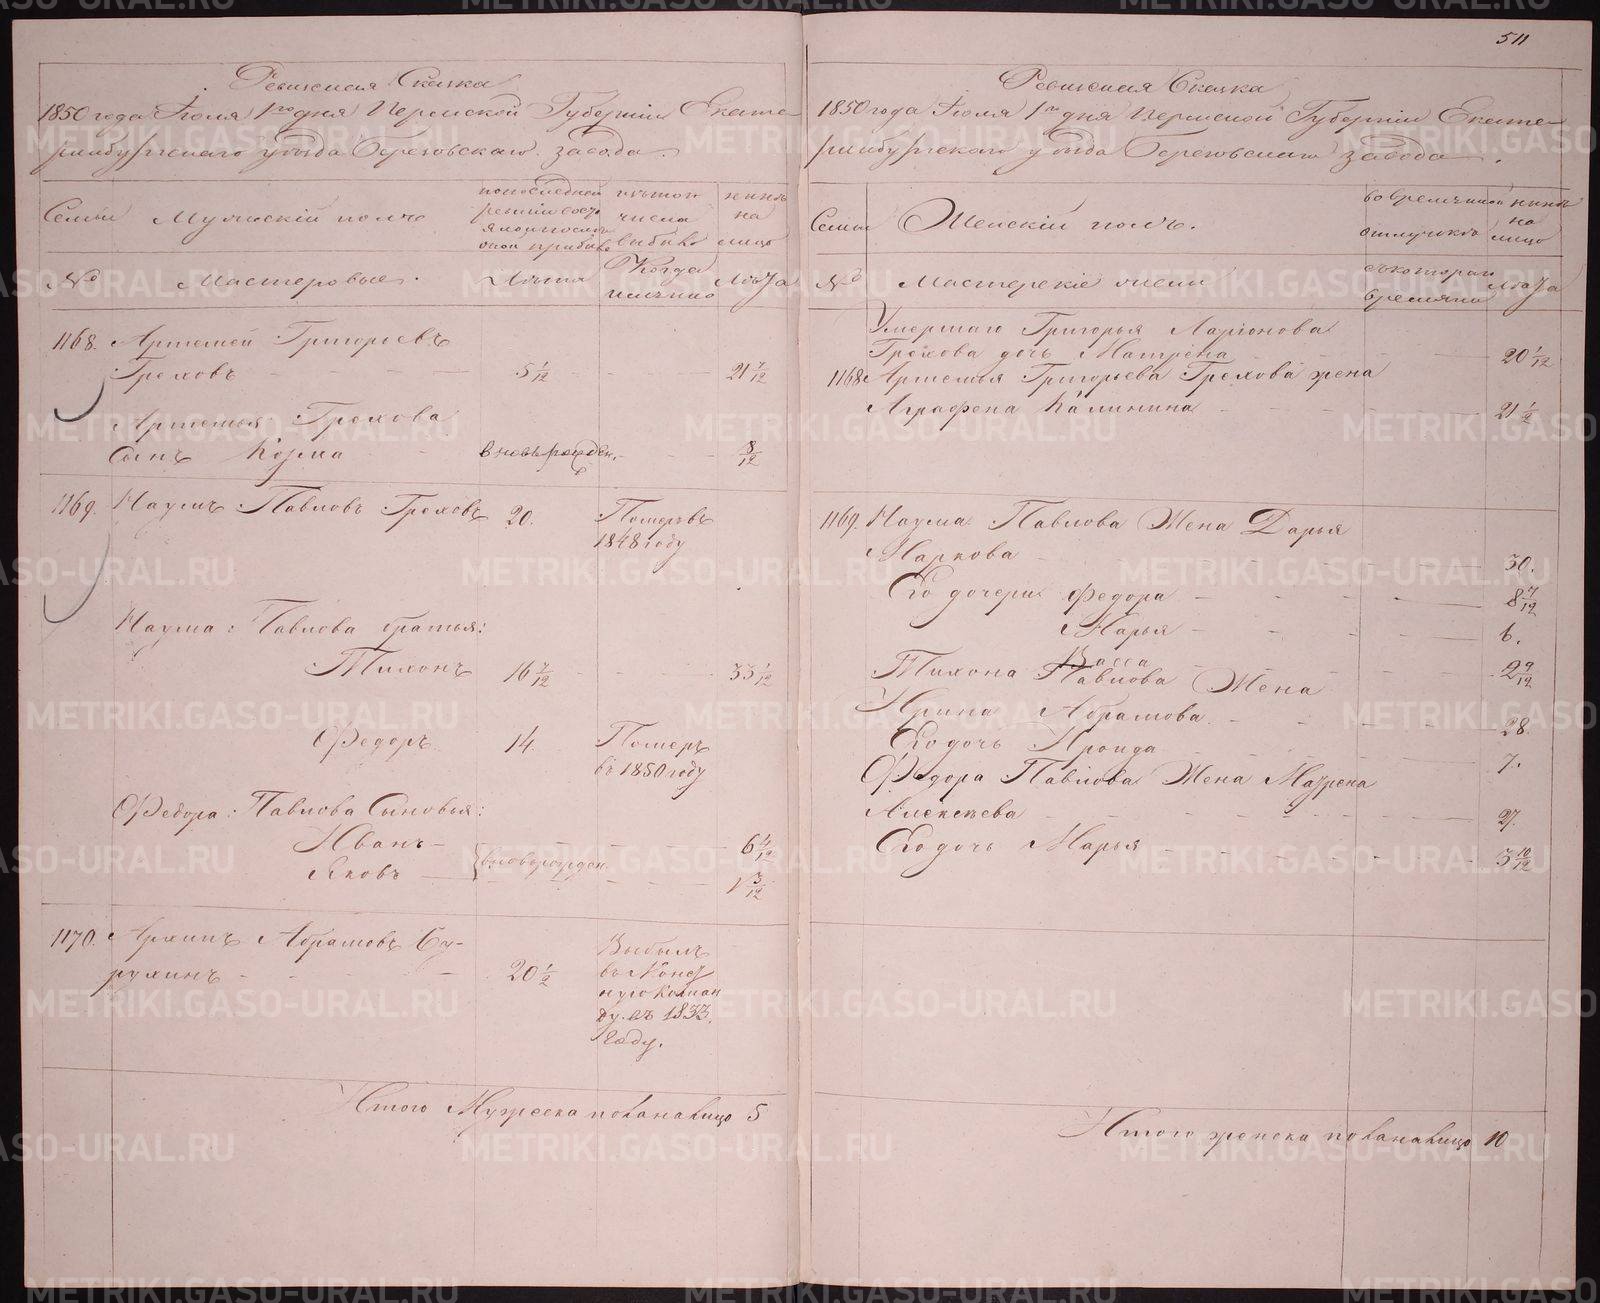 511
Ревизская Сказка
1850 года Июля 1го дня Пермской Губернии Екате-
ринбургскаго уѣзда Березовскаго завода.
Семьи
Мужескій полъ
по последней ревизіи состояло и после оной прибыло
изъ того числа выбыло
нынѣ на лицо
№
Мастеровые.
Лѣта
Когда именно
Лѣта
1168. Артемей Григорьевъ
Греховъ 5 1/12 21 7/12
Артемья Грехова
Сынъ Козма вновь рожден. 8/12
1169. Наумъ Павловъ Греховъ 20. Померъ въ
1848 году
Наума Павлова братья:
Тихонъ 16 7/12 33 1/12
Федоръ 14. Померъ
въ 1850 году
Федора Павлова Сыновья:
Иванъ 6 4/12
Яковъ вновь рожден. 1 3/12
1170. Архипъ Абрамовъ Бу-
рухинъ 20 1/2
Выбылъ
въ Кон
ную коман
ду въ 1833
году.
Итого Мужеска пола на лицо 5
Ревизская Сказка
1850 года Июля 1го дня Пермской Губернии Екате-
ринбургскаго уѣзда Березовскаго завода.
Семьи
Женскій полъ.
во временной отлучкѣ
нынѣ на лицо
№
Мастерскіе жены
съ котораго времяни
Лѣта
Умершаго Григорья Ларіонова
Грехова дочь Матрена 20 1/12
1168 Артемья Григорьева Грехова жена
Аграфена Калинина 21 1/2
1169. Наума Павлова Жена Дарья
Маркова 30.
Его дочери Федора 8 7/12
Марья 6.
Васса 2 9/12
Тихона Павлова Жена
Ирина Абрамова 28.
Его дочь Ираида 7.
Федора Павлова Жена Матрена
Алексѣева 27.
Его дочь Марья 3 10/12
Итого женска пола на лицо 10